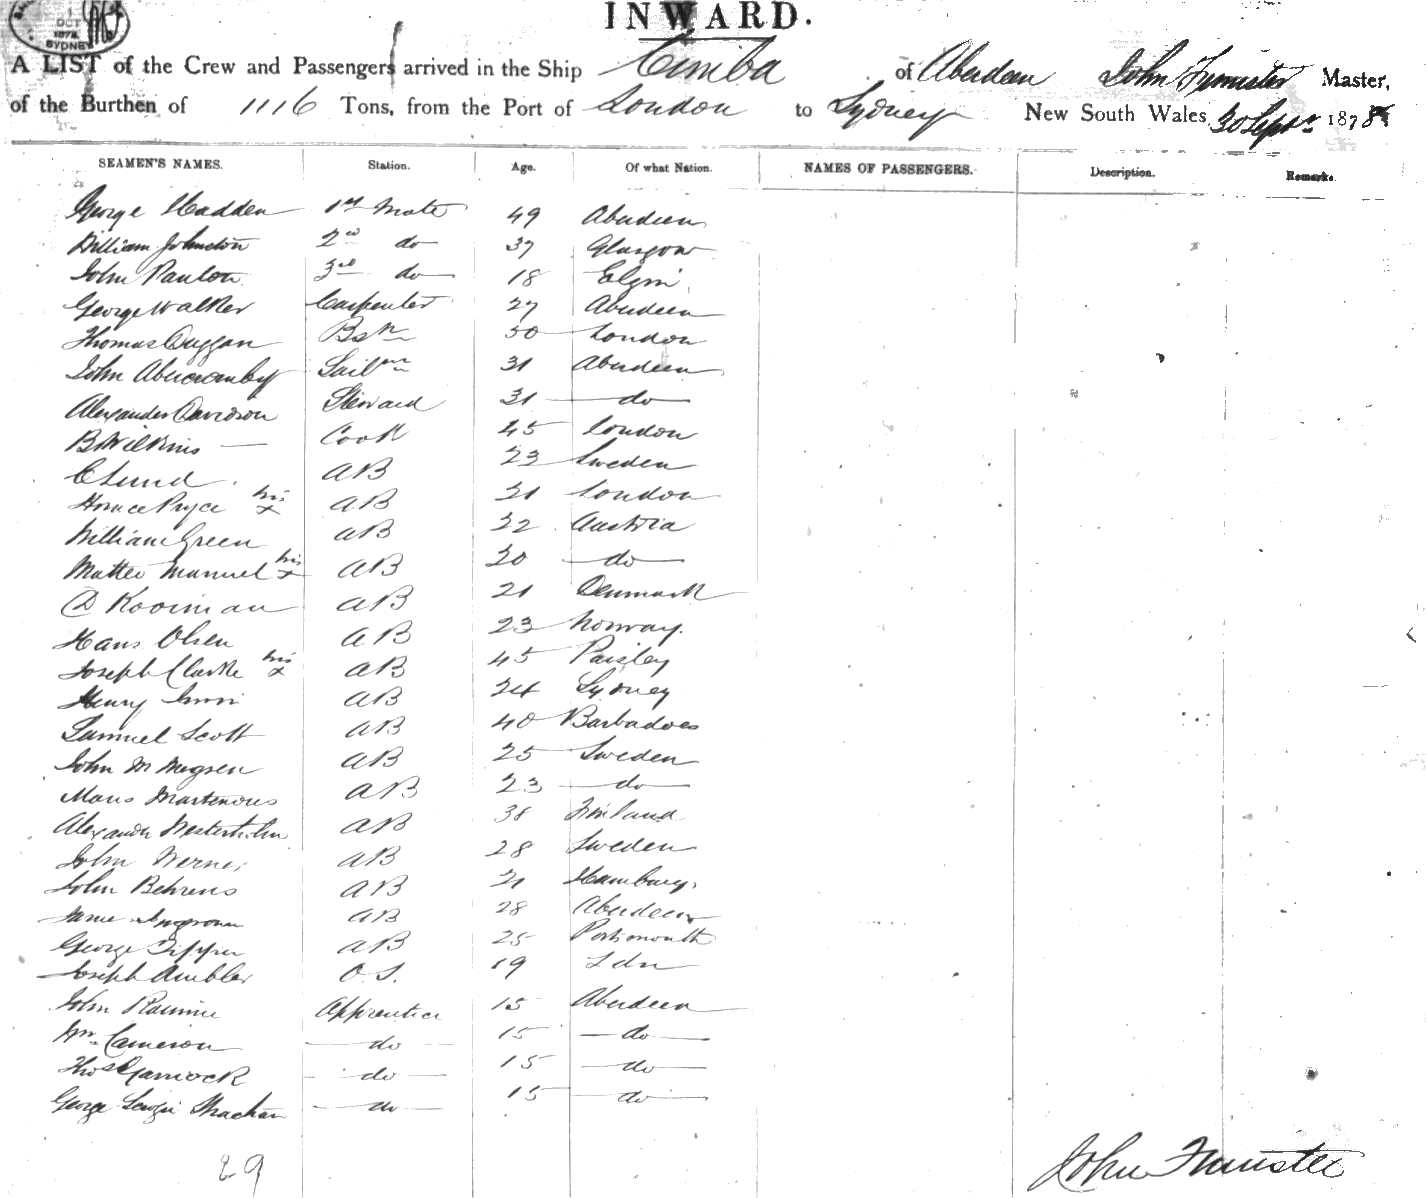 OCT
1878
SYDNEY
INWARD.
A LIST of the Crew and Passengers arrived in the Ship Cimba of Aberdeen John Fimister Master,
of the Burthen of 1116 Tons, from the Port of London to Sydney New South Wales 30 Septr 1878
SEAMEN'S NAMES. Station. Age. Of what Nation. NAMES OF PASSENGERS. Description. Remarks.
George Hadden 1st Mate 49 Aberdeen
William Johnston 2nd do 37 Glasgow
John Panton 3rd do 18 Elgin
George Walker Carpenter 27 Aberdeen
Thomas Duggan Bsn 50 London
John Abercromby Sailmr 31 Aberdeen
Alexander Davidson Steward 31 do
B Wilkins Cook 45 London
C Lund AB 23 Sweden
Horace Pryce his x AB 21 London
William Green AB 22 Austria
Matteo Manuel his x AB 20 do
D Kooiman AB 21 Denmark
Hans Olsen AB 23 Norway.
Joseph Clarke his x AB 45 Paisley
Henry AB 24 Sydney
Samuel Scott AB 40 Barbadoes
John M AB 25 Sweden
Mans Martenous AB 23 do
Alexandr Westerholm AB 38 Finland
John Werner AB 28 Sweden
John Behrens AB 21 Hamburg.
AB 28 Aberdeen
George Tipper AB 25 Portsmouth
Joseph Ambler O.S. 19 Ldn
John Apprentice 15 Aberdeen
Wm Cameron do 15 do
Thos Garriock do 15 do
George Strachan do 15 do
29
John Fimister